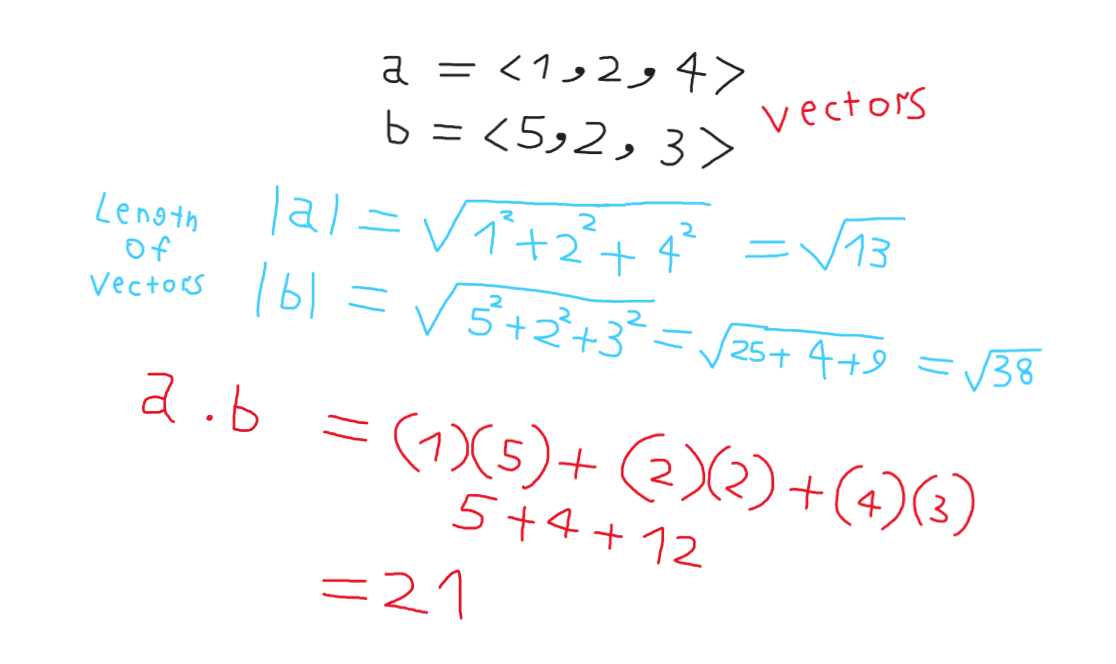 a = <1,2,4>
b = <5,2,3>
vectors
Length
of
vectors
|a| = √(1²+2²+4²) = √13
|b| = √(5²+2²+3²) = √(25+4+9) = √38
a.b = (1)(5)+(2)(2)+(4)(3)
5+4+12
=21